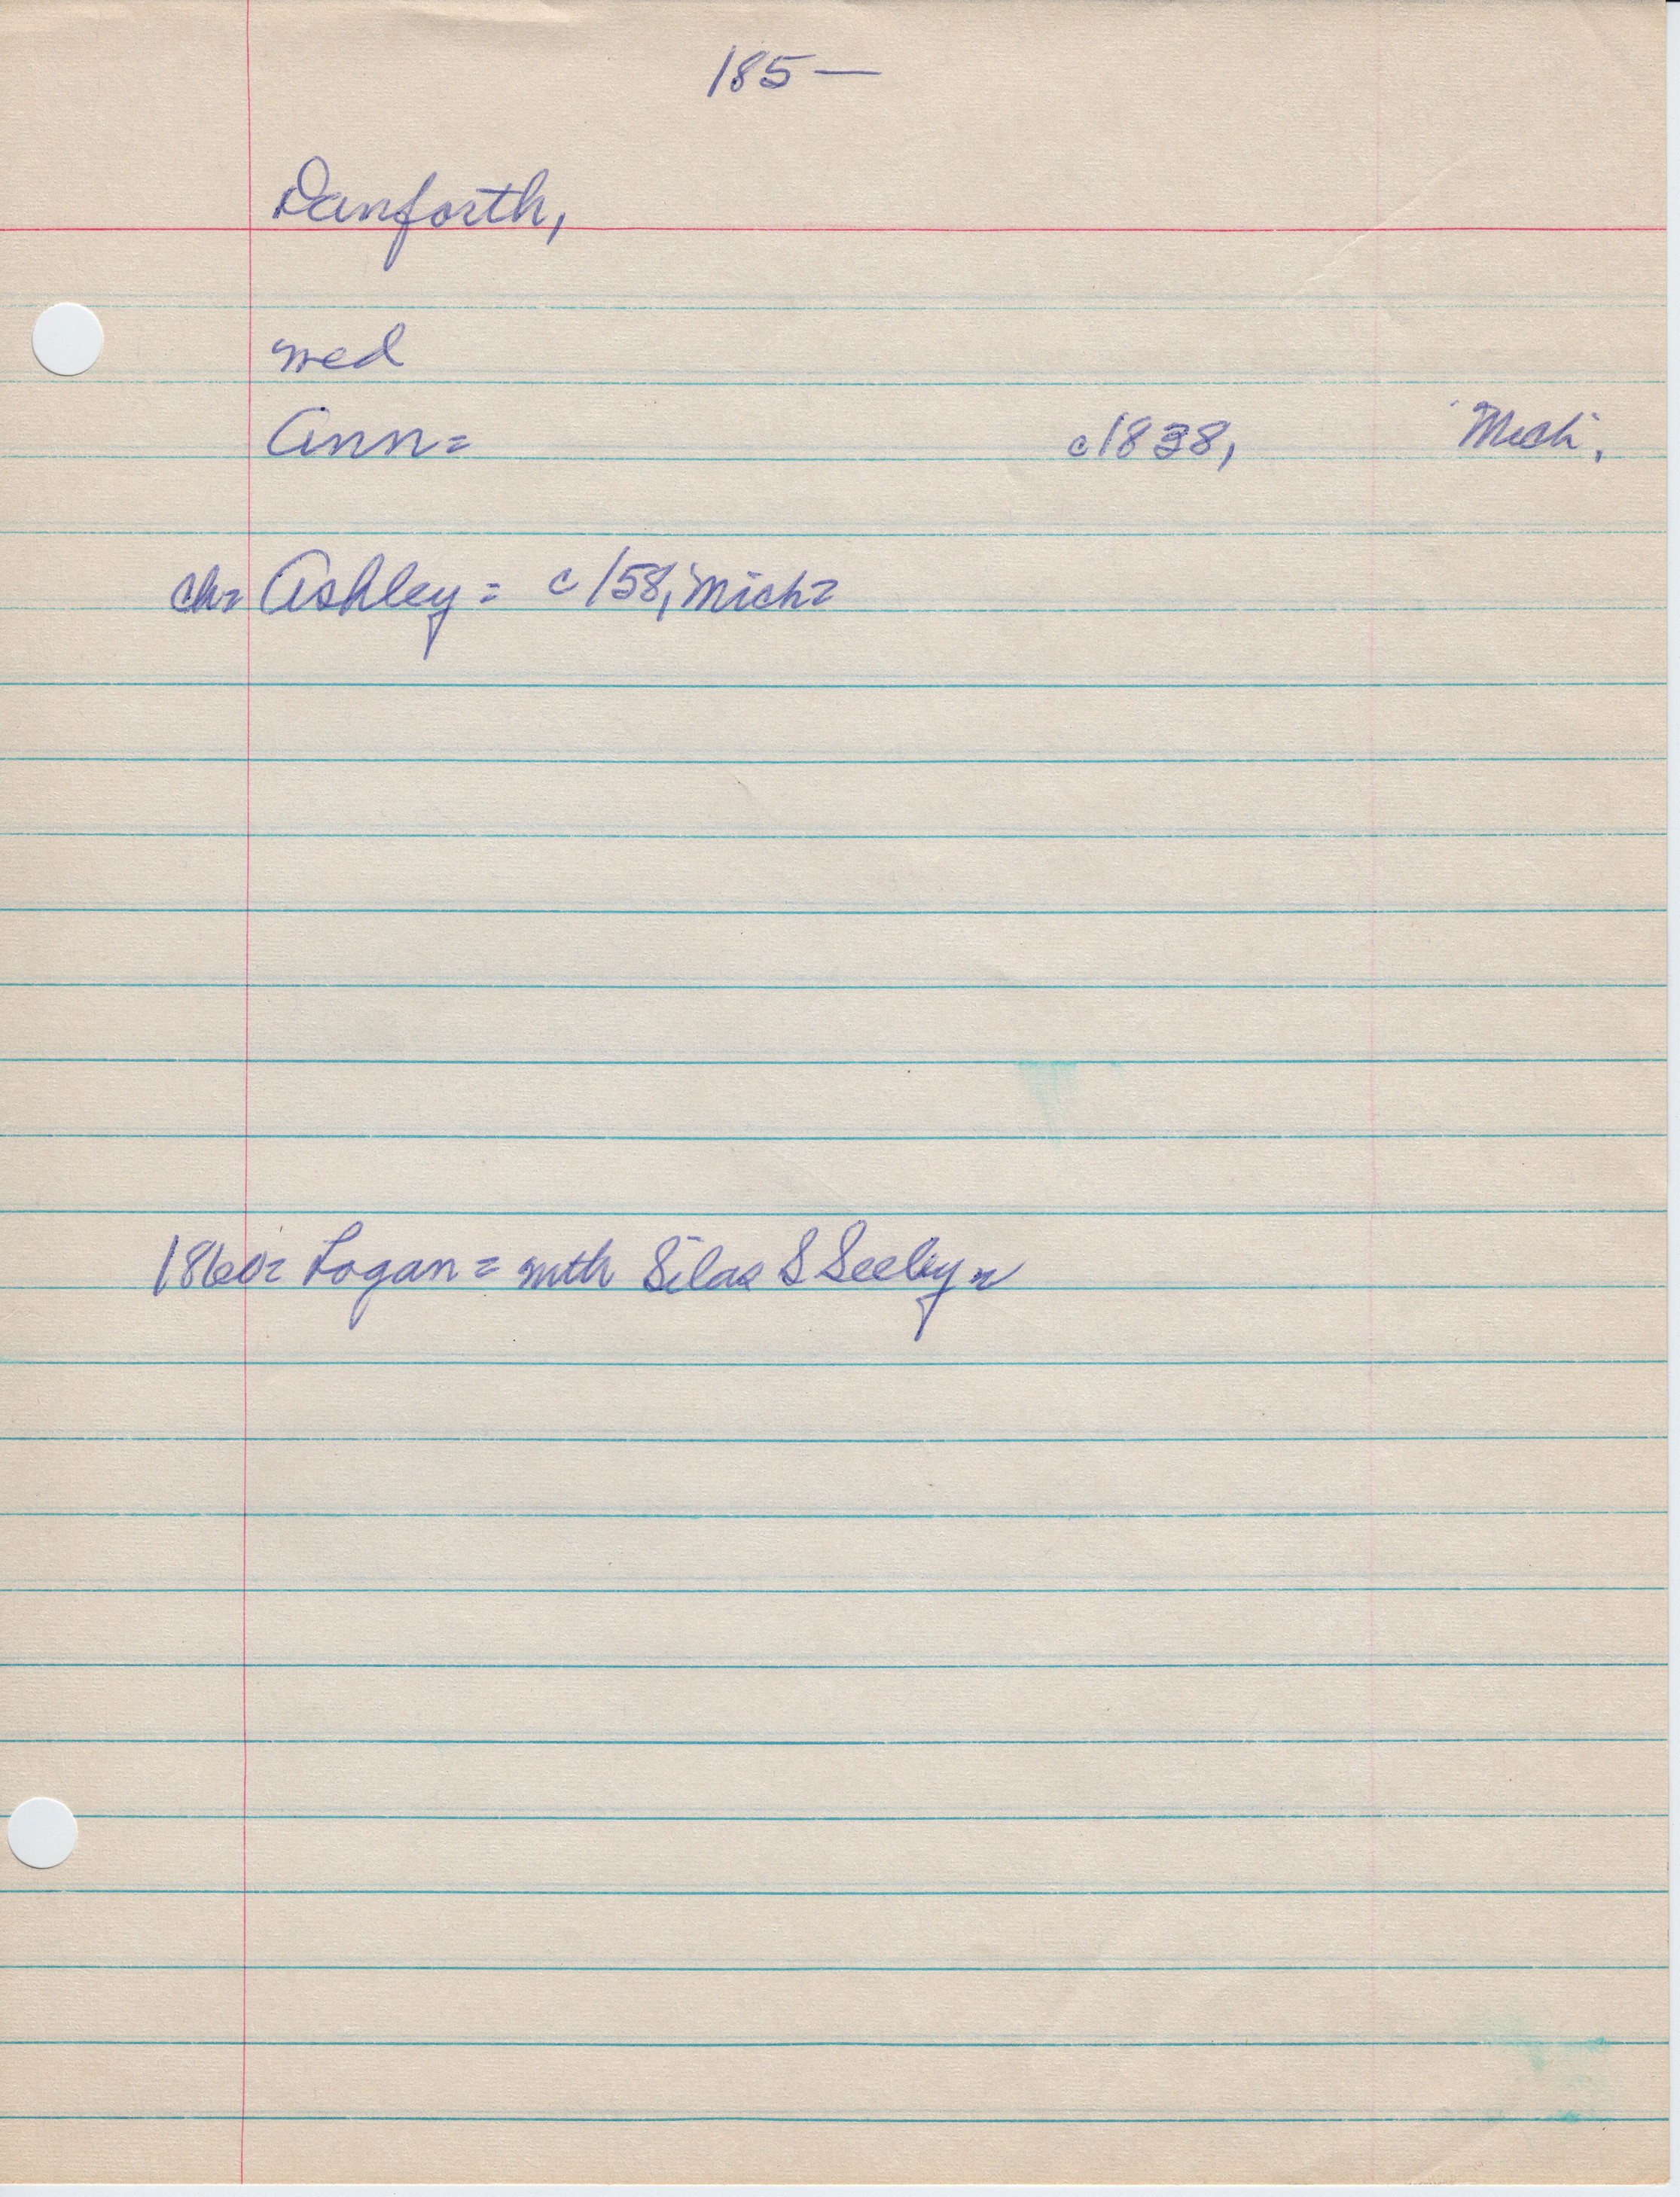 185—
Danforth,
med
Ann= c1838, Mich.
ch= Ashley= c/58, Mich=
1860= Logan= with Silas S Seeley=